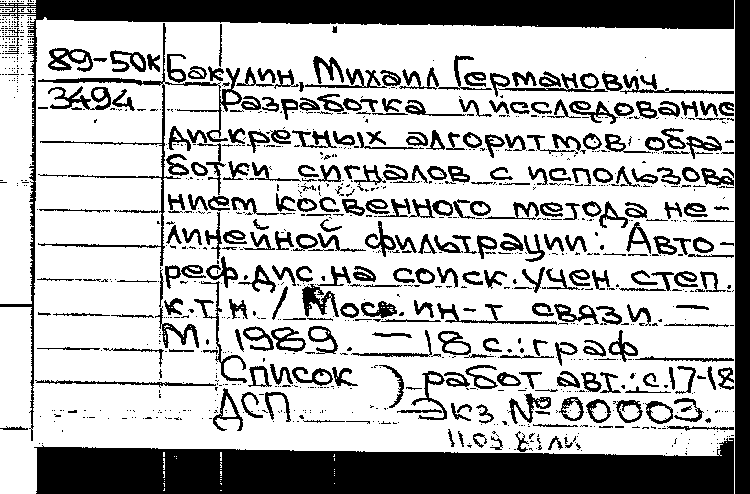 89-50к Бакулин, Михаил Германович.
3494 Разработка и исследование
дискретных алгоритмов обра-
ботки сигналов с использова
нием косвенного метода не-
линейной фильтрации: Авто-
реф. дис. на соиск. учен. степ.
к.т.н. / Моск. ин-т связи. —
М. 1989. — 18 с.: граф
Список работ авт.: с.17-18
ДСП. Экз. № 00003.
11.09.89